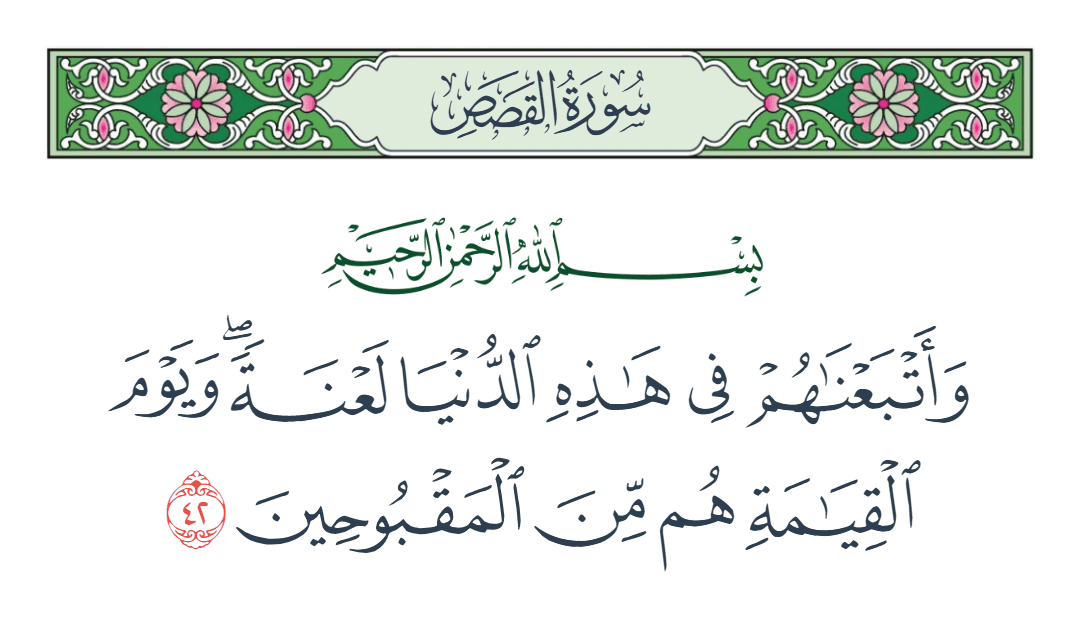 سُورَةُ القَصَصِ
بِسْمِ ٱللَّهِ ٱلرَّحْمَٰنِ ٱلرَّحِيمِ
وَأَتْبَعْنَٰهُمْ فِى هَٰذِهِ ٱلدُّنْيَا لَعْنَةً ۖ وَيَوْمَ
ٱلْقِيَٰمَةِ هُم مِّنَ ٱلْمَقْبُوحِينَ ٤٢